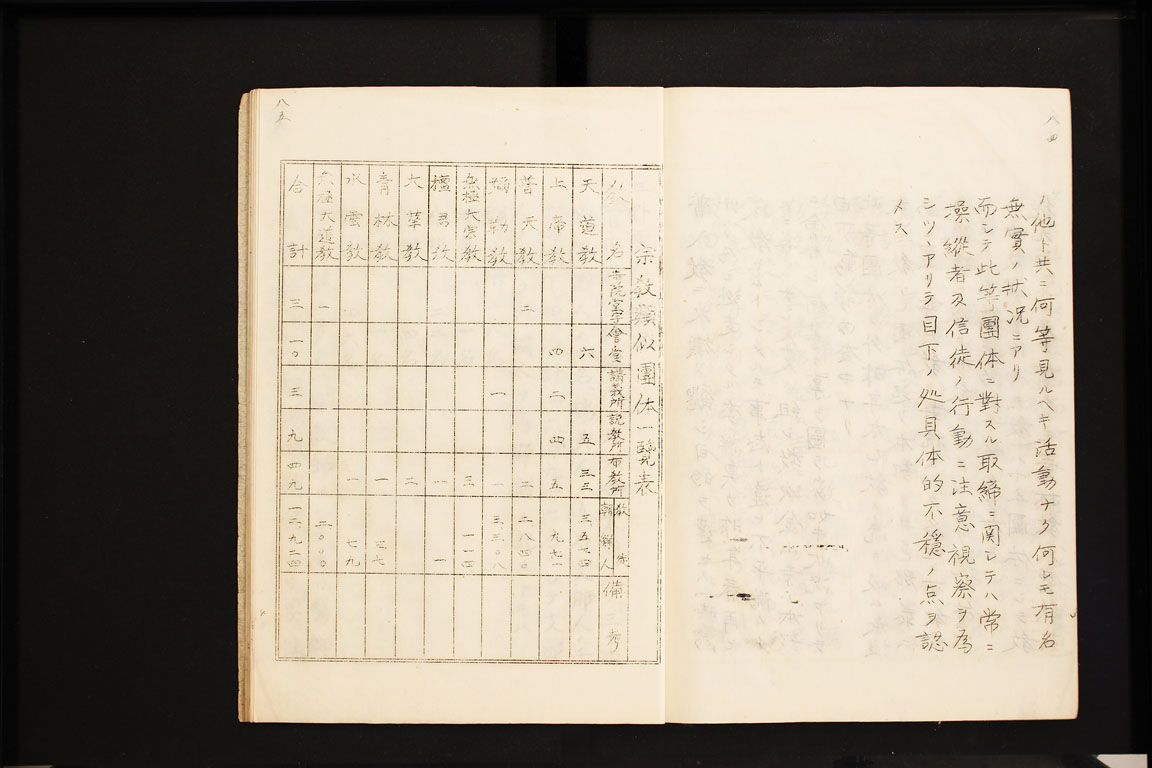 八四
ノ他ト共ニ何等見ルヘキ活動ナク何レモ有名
無實ノ状况ニアリ
而シテ此等團体ニ對スル取締ニ関シテハ常ニ
操縦者及信徒ノ行動ニ注意視察ヲ為
シツヽアリテ目下ノ処具体的不穏ノ点ヲ認
メス
八五
宗教類似團体一覧表
教名 寺院堂宇 會堂 講義所 説教所 布教所 教徒 朝鮮人 備考
天道教 六 五 三三
上帝教 四 二 四 五 九七一
普天教 二 二 二八四〇
彌勒教 一 一 三三〇八
無極大宗教 三 一一四
檀君教 一 一
大華教 二
青林教 一 三七
水雲教 一 七九
無極大道教 一 二〇〇〇
合計 三 一〇 三 九 四九 一二、九二四